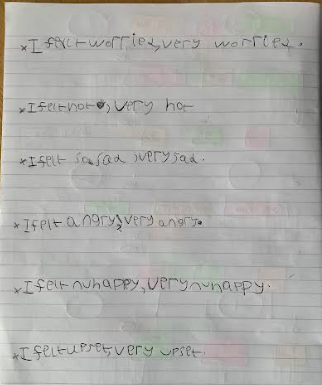 *I felt worried, very worried.
*I felt hot, very hot
*I felt so sad, very sad.
*I felt angry, very angry.
*I felt nuhappy, very nuhappy.
*I felt upset, very upset.